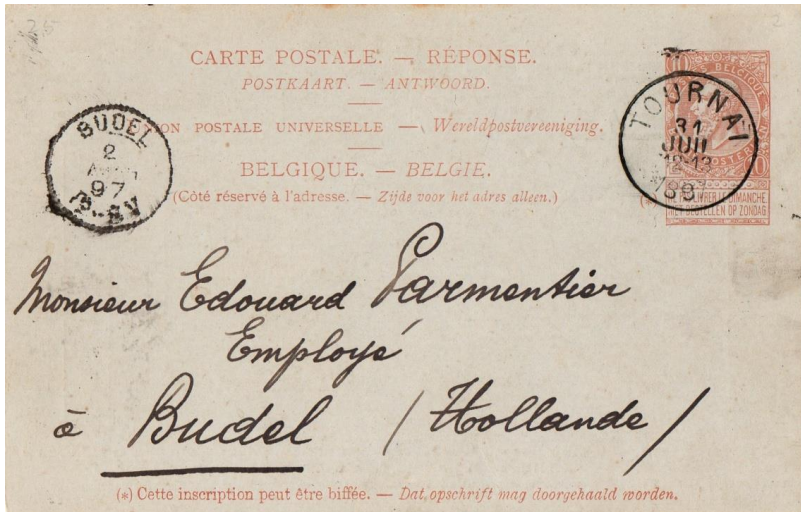 CARTE POSTALE. — RÉPONSE.
POSTKAART. — ANTWOORD.
UNION POSTALE UNIVERSELLE — Wereldpostvereeniging.
BELGIQUE. — BELGIE.
(Côté réservé à l'adresse. — Zijde voor het adres alleen.)
BUDEL
2
97
TOURNAI
31
JUIL
12-13
BELGIQUE
DIMANCHE
NIET BESTELLEN OP ZONDAG
Monsieur Edouard Parmentier
Employé
à Budel (Hollande)
(*) Cette inscription peut être biffée. — Dat opschrift mag doorgehaald worden.